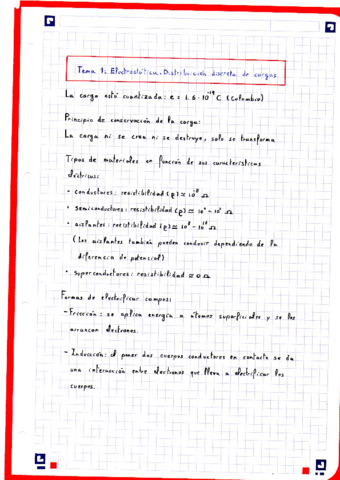 Tema 1: Electrostática. Distribución discreta de cargas
La carga está cuantizada: e = 1.6·10⁻¹⁹ C (Culombio)
Principio de conservación de la carga:
La carga ni se crea ni se destruye, solo se transforma
Tipos de materiales en función de sus características
eléctricas:
· conductores: resistibilidad (ρ) ≈ 10⁻⁸ Ω
· semiconductores: resistibilidad (ρ) ≈ 10⁴ - 10⁷ Ω
· aislantes: resistibilidad (ρ) ≈ 10⁸ - 10¹⁸ Ω
(Los aislantes también pueden conducir dependiendo de la
diferencia de potencial)
· superconductores: resistibilidad ≈ 0 Ω
Formas de electrificar campos:
- Fricción: se aplica energía a átomos superficiales y se les
arrancan electrones.
- Inducción: al poner dos cuerpos conductores en contacto se da
una interacción entre electrones que lleva a electrificar los
cuerpos.